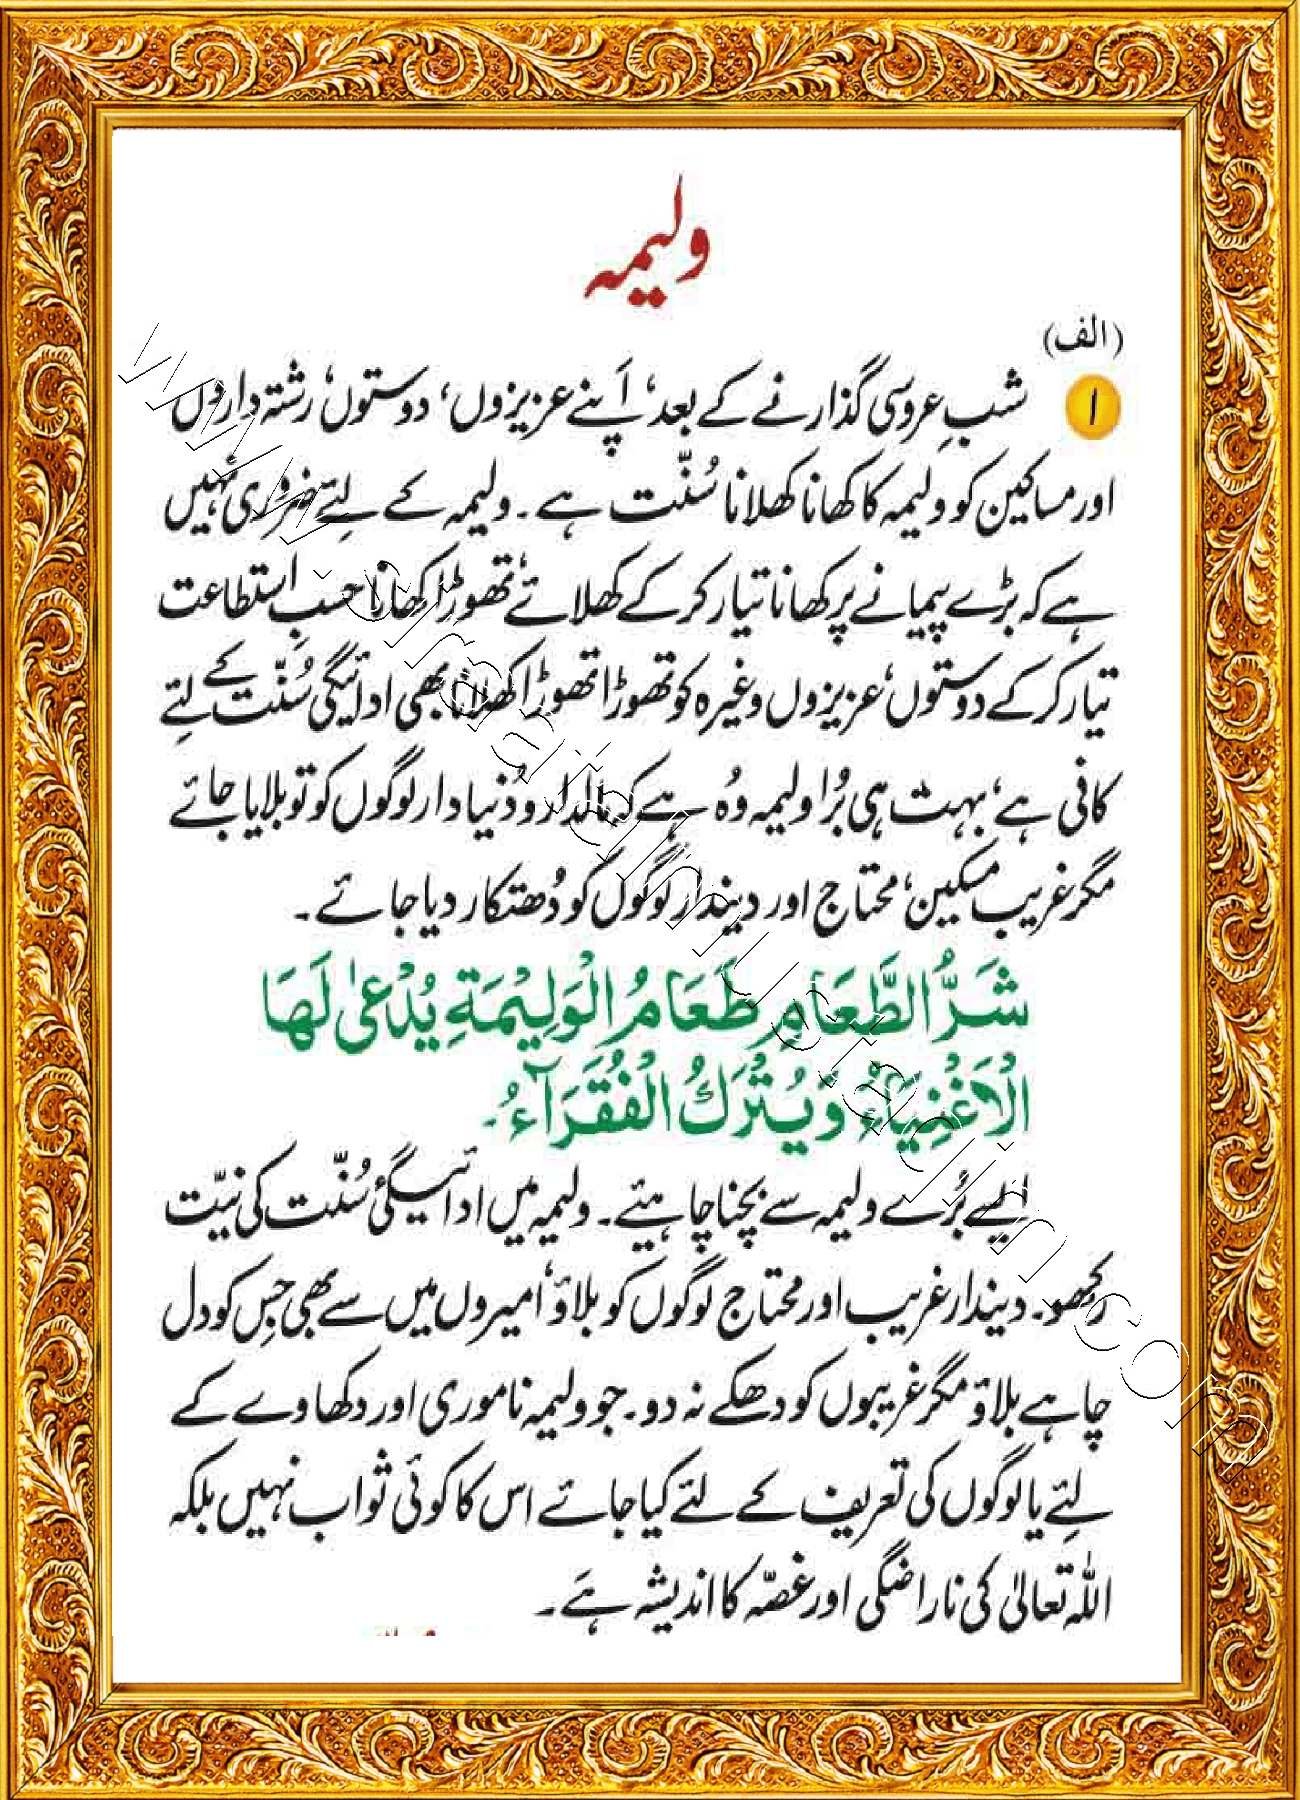 ولیمہ
(الف)
۱ شبِ عروسی گذارنے کے بعد، اَپنے عزیزوں، دوستوں، رشتہ داروں
اور مساکین کو ولیمہ کا کھانا کھلانا سُنّت ہے۔ ولیمہ کے لیٔے ضروری نہیں
ہے کہ بڑے پیمانے پر کھانا تیار کر کے کھلائے، تھوڑا کھانا حسبِ استطاعت
تیار کر کے دوستوں، عزیزوں وغیرہ کو تھوڑا تھوڑا کھلانا بھی ادائیگی سُنّت کے لئے
کافی ہے، بہت ہی بُرا ولیمہ وُہ ہے کہ مالدار و دُنیا دار لوگوں کو تو بلایا جائے
مگر غریب مسکین، محتاج اور دیندار لوگوں کو دُھتکار دیا جائے۔
شَرُّ الطَّعَامِ طَعَامُ الْوَلِيْمَةِ يُدْعىٰ لَهَا
الْاَغْنِيَآءُ وَيُتْرَكُ الْفُقَرَآءُ۔
ایسے بُرے ولیمہ سے بچنا چاہیئے۔ ولیمہ میں ادائیگیٔ سُنّت کی نیّت
رکھو۔ دیندار غریب اور محتاج لوگوں کو بلاؤ، امیروں میں سے بھی جِس کو دل
چاہے بلاؤ مگر غریبوں کو دھکے نہ دو۔ جو ولیمہ ناموری اور دکھاوے کے
لئے یا لوگوں کی تعریف کے لئے کیا جائے اس کا کوئی ثواب نہیں بلکہ
اللہ تعالیٰ کی ناراضگی اور غصّہ کا اندیشہ ہَے۔